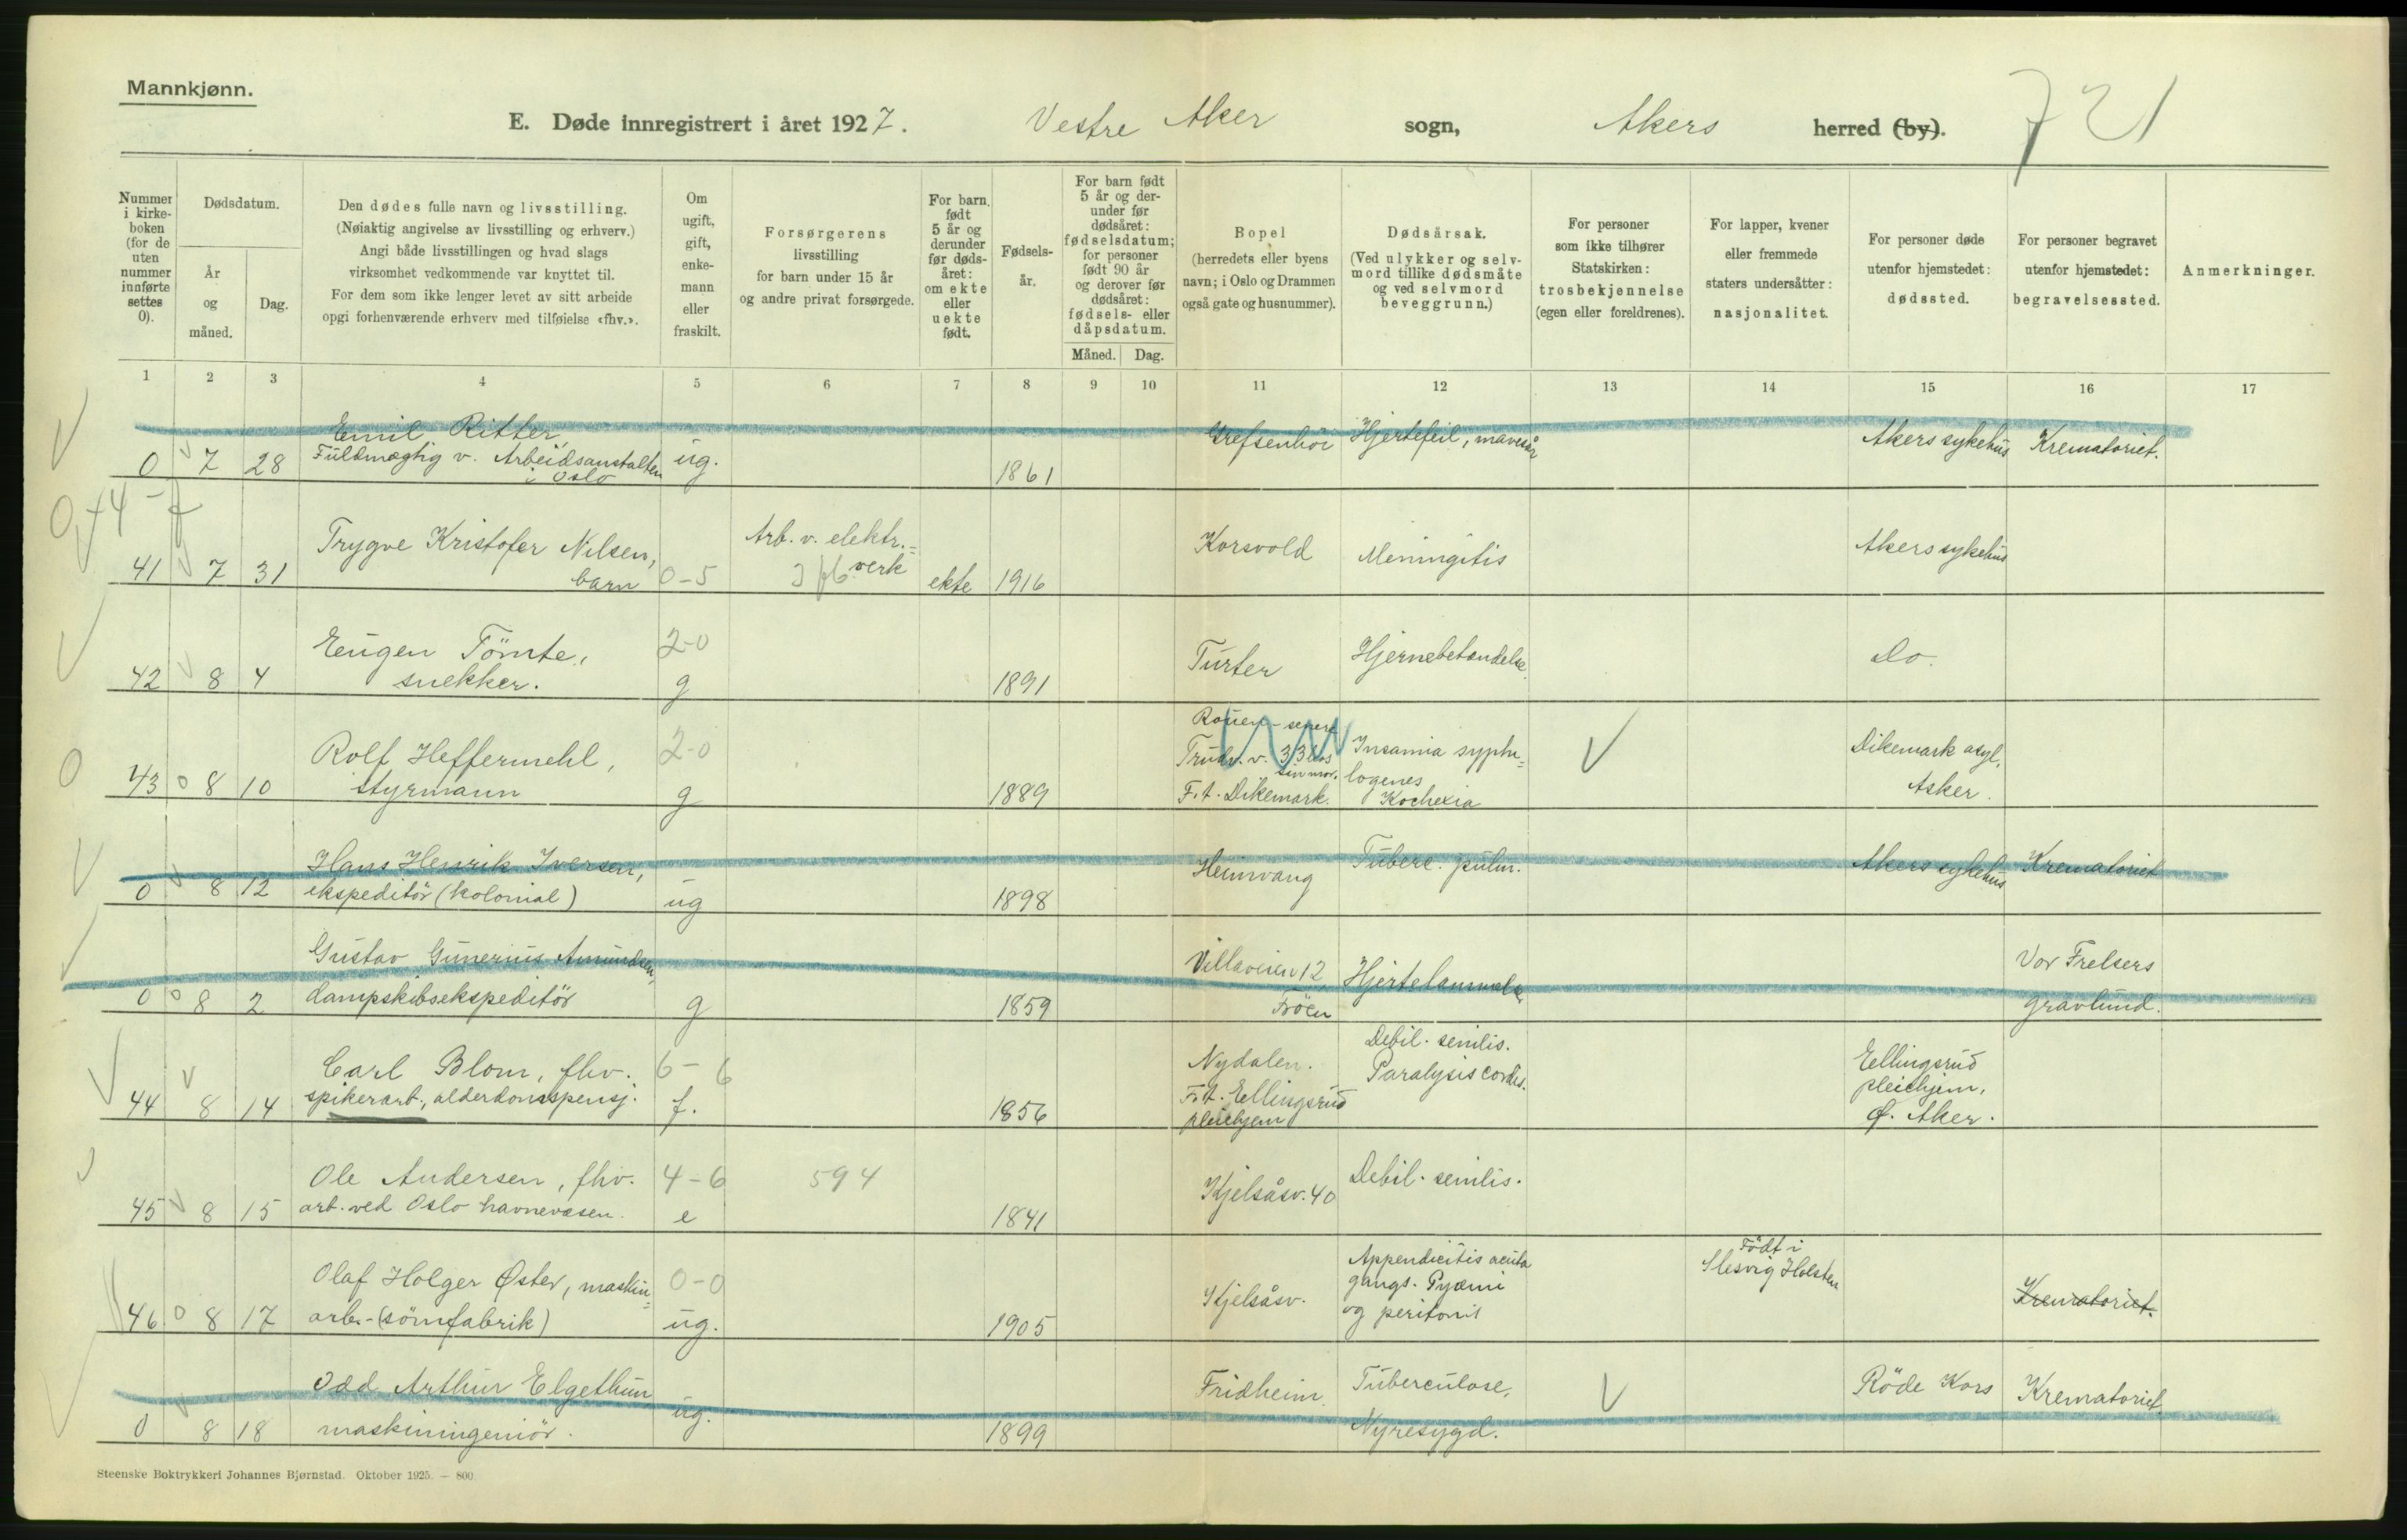 Mannkjønn.
E. Døde innregistrert i året 1927. Vestre Aker sogn, Akers herred (by). 721
Nummer i kirke-boken (for de uten nummer innførte settes 0).
Dødsdatum.
År og måned.
Dag.
Den dødes fulle navn og livsstilling.
(Nøiaktig angivelse av livsstilling og erhverv.)
Angi både livsstillingen og hvad slags
virksomhet vedkommende var knyttet til.
For dem som ikke lenger levet av sitt arbeide
opgi forhenværende erhverv med tilføielse «fhv.».
Om ugift, gift, enke-mann eller fraskilt.
Forsørgerens
livsstilling
for barn under 15 år
og andre privat forsørgede.
For barn født 5 år og derunder før døds-året: om ekte eller uekte født.
Fødsels-år.
For barn født 5 år og der-under før dødsåret: fødselsdatum; for personer født 90 år og derover før dødsåret: fødsels- eller dåpsdatum.
Måned. Dag.
Bopel
(herredets eller byens
navn; i Oslo og Drammen
også gate og husnummer).
Dødsårsak.
(Ved ulykker og selv-
mord tillike dødsmåte
og ved selvmord
beveggrunn.)
For personer
som ikke tilhører
Statskirken:
trosbekjennelse
(egen eller foreldrenes).
For lapper, kvener
eller fremmede
staters undersåtter:
nasjonalitet.
For personer døde
utenfor hjemstedet:
dødssted.
For personer begravet
utenfor hjemstedet:
begravelsessted.
Anmerkninger.
1 2 3 4 5 6 7 8 9 10 11 12 13 14 15 16 17
Emil Ritter, Grefsenhöi Hjertefeil, mavesår Akers sykehus Krematoriet.
0 7 28 Fuldmægtig v. Arbeidsanstalten ug. 1861
i Oslo
0 +4 - 7
Trygve Kristofer Nilsen, Arb. v. elektr.= Korsvold Meningitis Akers sykehus
41 7 31 barn 0-5 verk ekte 1916
Eugen Tömte, 2-0 Turter Hjernebetendelse Do.
42 8 4 snekker. g 1891
Rolf Heffermehl, 2-0 Trudv. v. 33 hos Insania syphi= Dikemark asyl,
sin mor. logenes
43 0 8 10 styrmann g 1889 F.t. Dikemark. Kochexia Asker.
Hans Henrik Iversen, Heimvang Tuberc. pulm. Akers sykehus Krematoriet
0 8 12 ekspeditör (kolonial) ug 1898
Gustav Gunerius Amundsen, Villaveien 12, Hjertelammelse Vor Frelsers
0 0 8 2 dampskibsekspeditör g 1859 Fröen gravlund.
Carl Blom, fhv. 6-6 Nydalen. Debil. senilis. Ellingsrud
44 8 14 spikerarb., alderdomspensj. f. 1856 F.t. Ellingsrud Paralysis cordis. pleiehjem,
pleiehjem Ø. Aker.
Ole Andersen, fhv. 4-6 594 Kjelsåsv. 40 Debil. senilis.
45 8 15 arb. ved Oslo havnevæsen. e 1841
Olaf Holger Øster, maskin= 0-0 Kjelsåsv. Appendicitis acuta Födt i
gangr. Pyæmi Slesvig Holsten
46 0 8 17 arb.-(sömfabrik) ug. 1905 og peritonit Krematoriet.
Odd Arthur Elgethun Fridheim. Tuberculose, Röde Kors Krematoriet
0 8 18 maskiningeniör. ug. 1899 Nyresygd.
Steenske Boktrykkeri Johannes Bjørnstad. Oktober 1925. — 800.